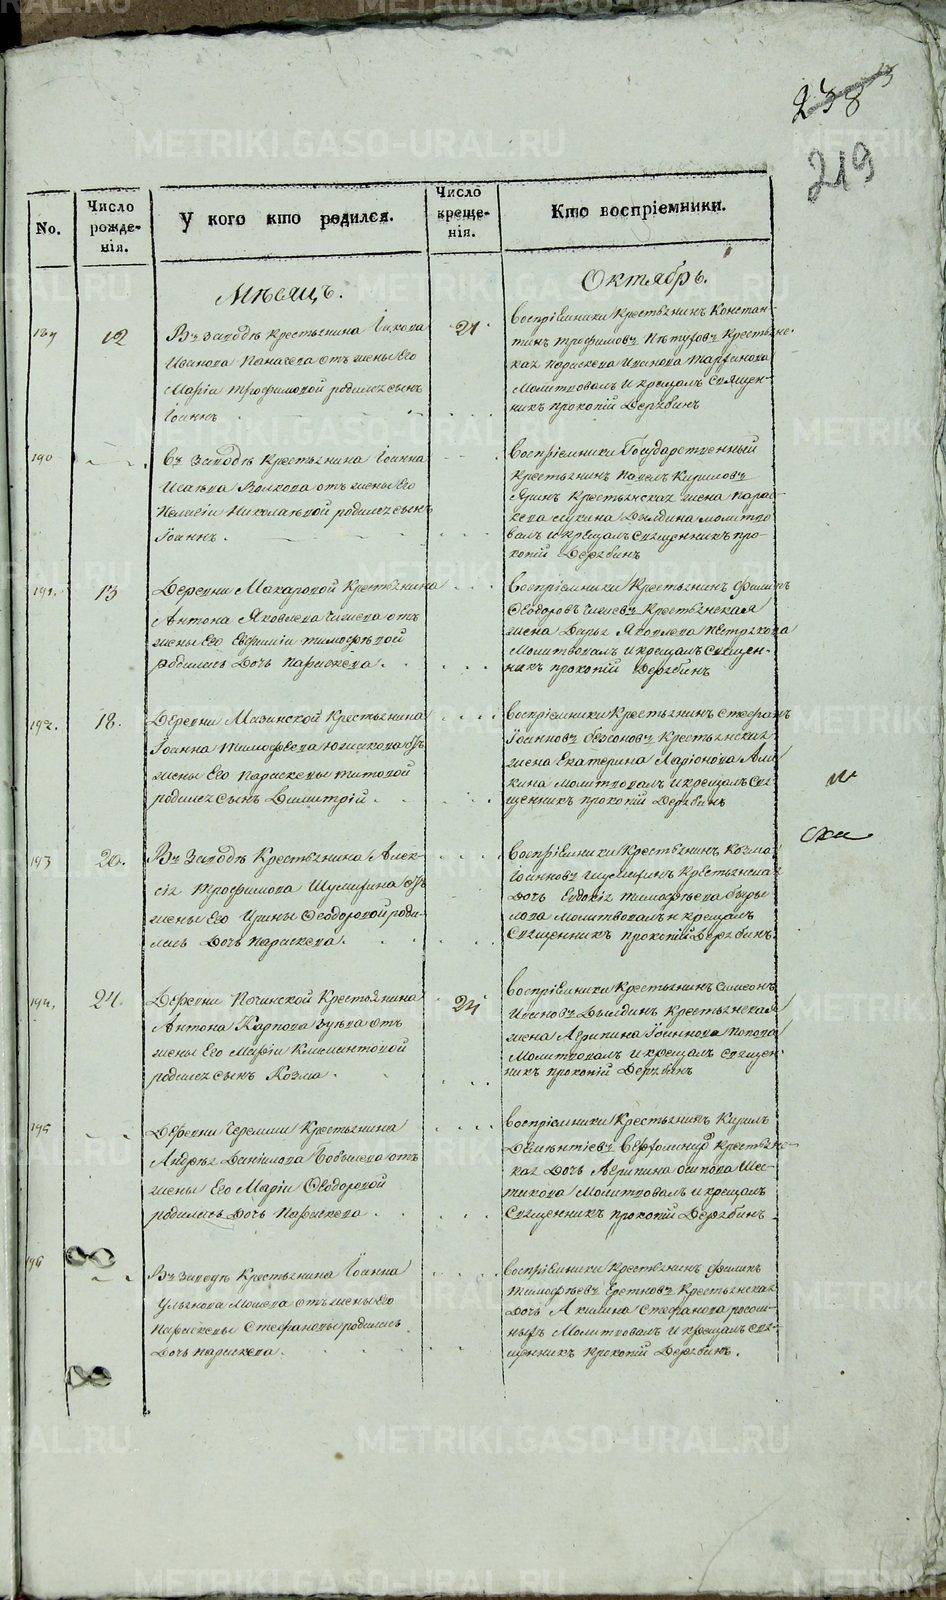 238
219
No.
Число рожде- нія.
У кого кто родился.
Число креще- нія.
Кто воспріемники.
Мѣсяцъ.
Октябрь.
189
12
Въ Заводѣ Крестьянина Іакова
Иванова Панаева отъ жены Его
Маріи Трофимовой родился сынъ
Іоаннъ
21
воспріемники Крестьянинъ Констан-
тинъ Трофимовъ Пѣтуховъ Крестьянс-
кая Параскева Иванова
Молитвовалъ и крещалъ Священ-
никъ Прокопій Дерябинъ
190
Въ Заводѣ Крестьянина Іоанна
Исаева Волкова отъ жены Его
Пелагіи Николаевой родился сынъ
Іоаннъ
воспріемники Государственный
Крестьянинъ Павелъ Кириловъ
Крестьянская жена Парас-
кева Лукина Дылдина молитво
валъ и крещалъ Священникъ Про-
копій Дерябинъ
191.
13
Деревни Макаровой Крестьянина
Антона Яковлева отъ
жены Его Евфиміи Тимофѣевой
родилась Дочь Параскева
воспріемники Крестьянинъ Филипъ
Феодоровъ Крестьянская
жена Дарья Яковлева Пѣтухова
Молитвовалъ и крещалъ Священ-
никъ Прокопій Дерябинъ
192.
18.
Деревни Мазинской Крестьянина
Іоанна Тимофѣева отъ
жены Его Параскевы Титовой
родился сынъ Димитрій
воспріемники Крестьянинъ Стефанъ
Іоанновъ Крестьянская
жена Екатерина Ларіонова
кина молитвовалъ и крещалъ Свя-
щенникъ Прокопій Дерябинъ
193
20.
Въ Заводѣ Крестьянина Алек-
сія Трофимова Шумилина отъ
жены Его Ирины Феодоровой роди-
лась Дочь Параскева.
воспріемники Крестьянинъ Козма
Іоанновъ Крестьянская
Дочь Евдокія Тимофѣева
лова Молитвовалъ и крещалъ
Священникъ Прокопій Дерябинъ.
194.
24.
Деревни Починской Крестьянина
Антона Карпова Зуева отъ
жены Его Маріи Климантовой
родился сынъ Козма
24
воспріемники Крестьянинъ Симеонъ
Ивановъ Дылдинъ Крестьянская
жена Агрипина Іоаннова Попова
Молитвовалъ и крещалъ Священ-
никъ Прокопій Дерябинъ
195
Деревни Черемши Крестьянина
Андрея Даніилова Бобылева отъ
жены Его Маріи Феодоровой
родилась Дочь Параскева
воспріемники Крестьянинъ Кирилъ
Дементіевъ Крестьянс-
кая Дочь Агрипина Осипова
Молитвовалъ и крещалъ
Священникъ Прокопій Дерябинъ
196
Въ Заводѣ Крестьянина Іоанна
Ульянова отъ жены Его
Параскевы Стефановы родилась
Дочь Параскева.
воспріемники Крестьянинъ Филипъ
Тимофѣевъ Крестьянская
Дочь Акилина Стефанова
Молитвовалъ и крещалъ Свя-
щенникъ Прокопій Дерябинъ.
METRIKI.GASO-URAL.RU